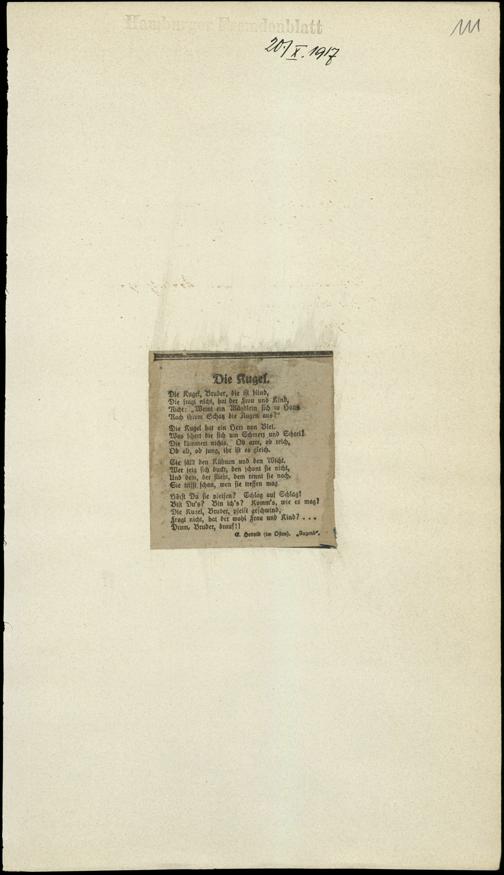 Hamburger Fremdenblatt
20/X. 1917
111
Die Kugel.
Die Kugel, Bruder, die ist blind,
Die fragt nicht, hat der Frau und Kind,
Nicht: „Weint ein Mägdlein sich zu Haus
Nach ihrem Schatz die Augen aus?“
Die Kugel hat ein Herz von Blei.
Was schert die sich um Schmerz und Schrei!
Die kümmert nichts. Ob arm, ob reich,
Ob alt, ob jung, ihr ist es gleich.
Sie fällt den Kühnen und den Wicht.
Wer feig sich duckt, den schont sie nicht,
Und dem, der flieht, dem rennt sie nach.
Sie trifft schon, wen sie treffen mag.
Hörst Du sie pfeifen? Schlag auf Schlag!
Bist Du's? Bin ich's? Komm's, wie es mag!
Die Kugel, Bruder, pfeift geschwind,
Fragt nicht, hat der wohl Frau und Kind? . . .
Drum, Bruder, drauf!!
E. Herold (im Osten). „Jugend“.